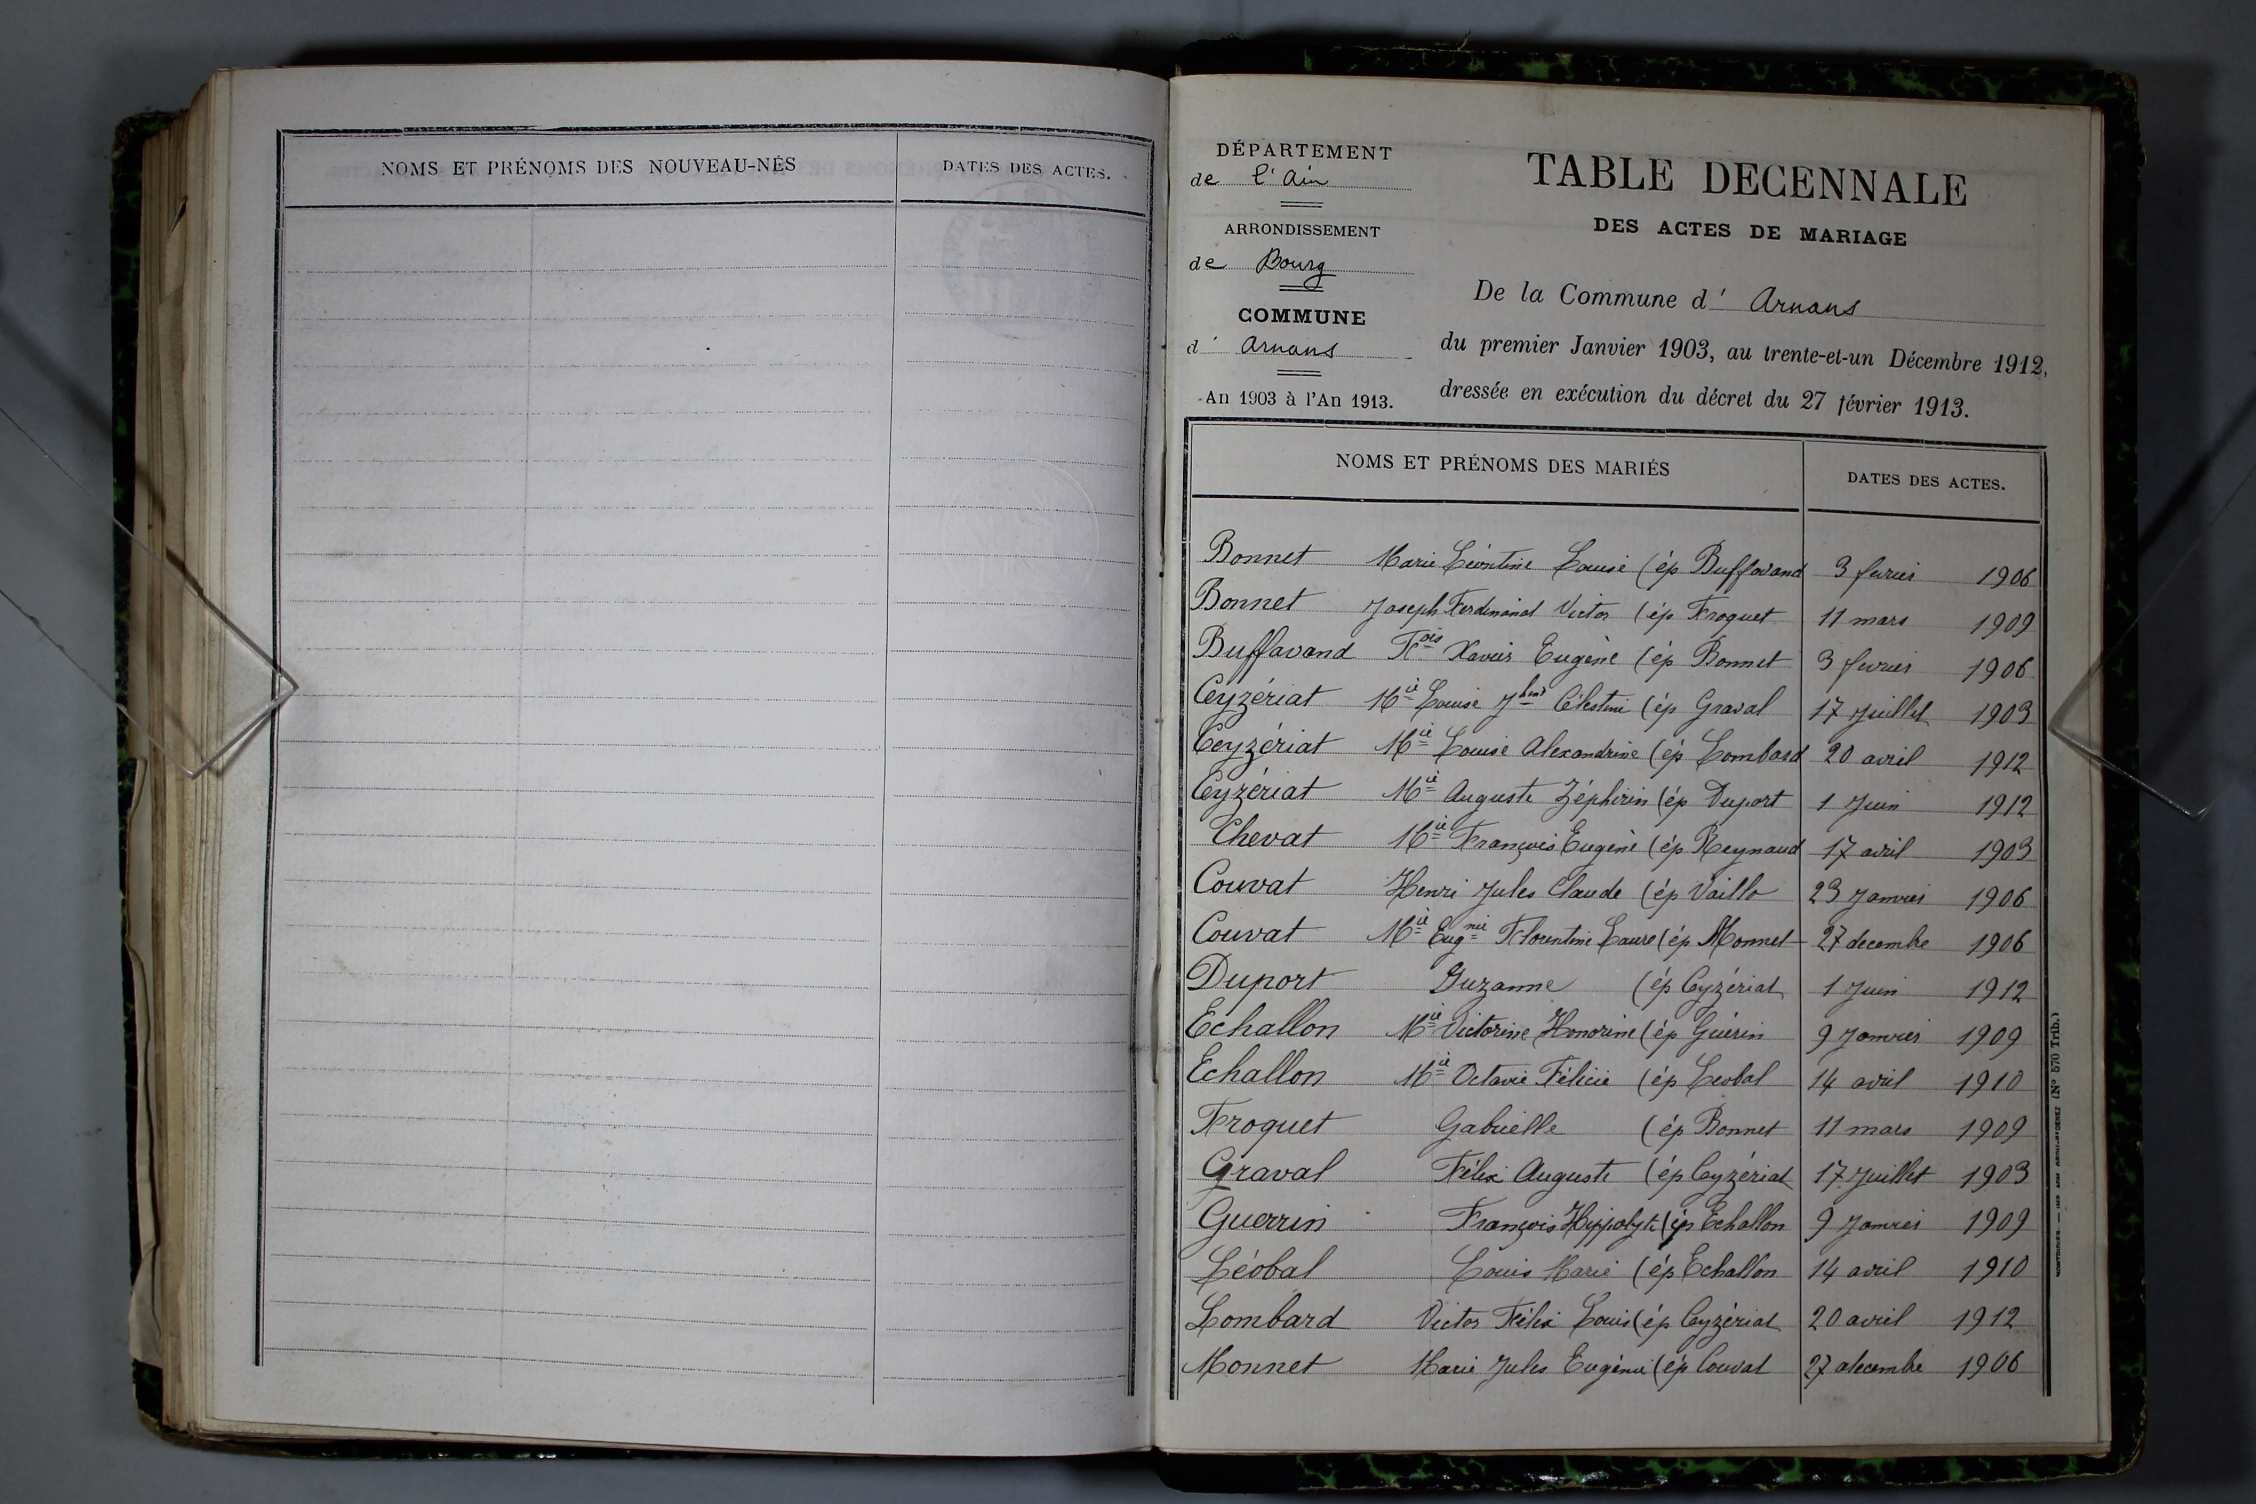 NOMS ET PRÉNOMS DES NOUVEAU-NÉS
DATES DES ACTES.
DÉPARTEMENT
de l'Ain
ARRONDISSEMENT
de Bourg
COMMUNE
d' Arnans
An 1903 à l'An 1913.
TABLE DECENNALE
DES ACTES DE MARIAGE
De la Commune d' Arnans
du premier Janvier 1903, au trente-et-un Décembre 1912,
dressée en exécution du décret du 27 février 1913.
NOMS ET PRÉNOMS DES MARIÉS DATES DES ACTES.
Bonnet Marie Léontine Louise (ép Buffavand 3 fevrier 1906
Bonnet Joseph Ferdinand Victor (ép Froquet 11 mars 1909
Buffavand Fois Xavier Eugène (ép Bonnet 3 fevrier 1906
Ceyzériat Mie Louise Célestine (ép Graval 17 Juillet 1903
Ceyzériat Mie Louise Alexandrine (ép Lombard 20 avril 1912
Cyzériat Mie Auguste Zéphirin (ép Duport 1 Juin 1912
Chevat Mie François Eugène (ép Reynaud 17 avril 1903
Couvat Henri Jules Claude (ép Vaillo 23 Janvier 1906
Couvat Mie Eugnie Florentine Laure (ép Monnet 27 decembre 1906
Duport Suzanne (ép Cyzériat 1 Juin 1912
Echallon Mie Victorine Honorine (ép Guérin 9 Janvier 1909
Echallon Mie Octavie Félicie (ép Leobal 14 avril 1910
Froquet Gabrielle (ép Bonnet 11 mars 1909
Graval Félix Auguste (ép Cyzériat 17 Juillet 1903
Guerrin François Hippolyte (ép Echallon 9 Janvier 1909
Léobal Louis Marie (ép Echallon 14 avril 1910
Lombard Victor Félix Louis (ép Cyzériat 20 avril 1912
Monnet Marie Jules Eugène (ép Couvat 27 decembre 1906
(N° 570 Trib.)